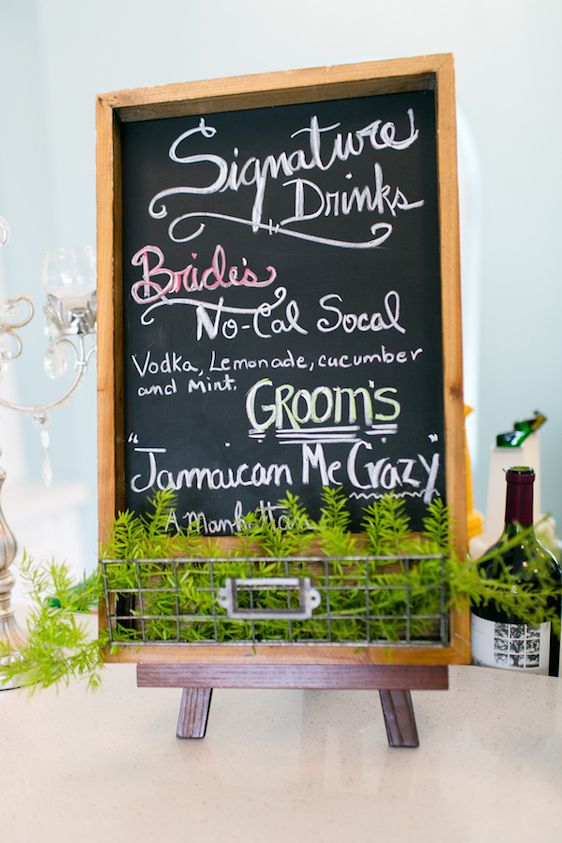 Signature
Drinks
Bride's
No-Cal Socal
Vodka, Lemonade, cucumber
and mint.
GROOM'S
"Jamaican Me Crazy"
A Manhattan